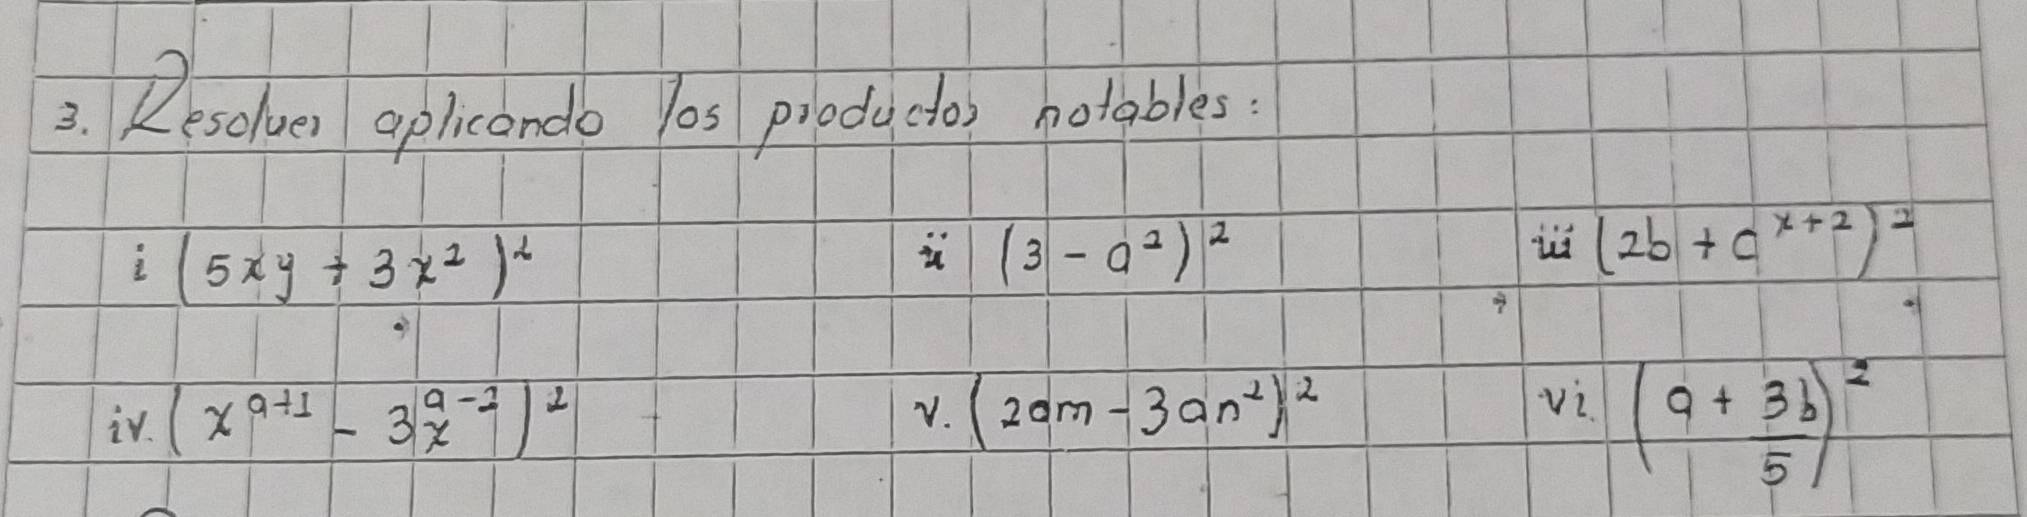 3. Resolver aplicando los productos notables:
i (5xy + 3x²)² ii (3 - a²)² iii (2b + a^{x+2})²
iv. (x^{a+1} - 3x^{a-2})² v. (2am - 3an²)² vi. (a + 3b/5)²